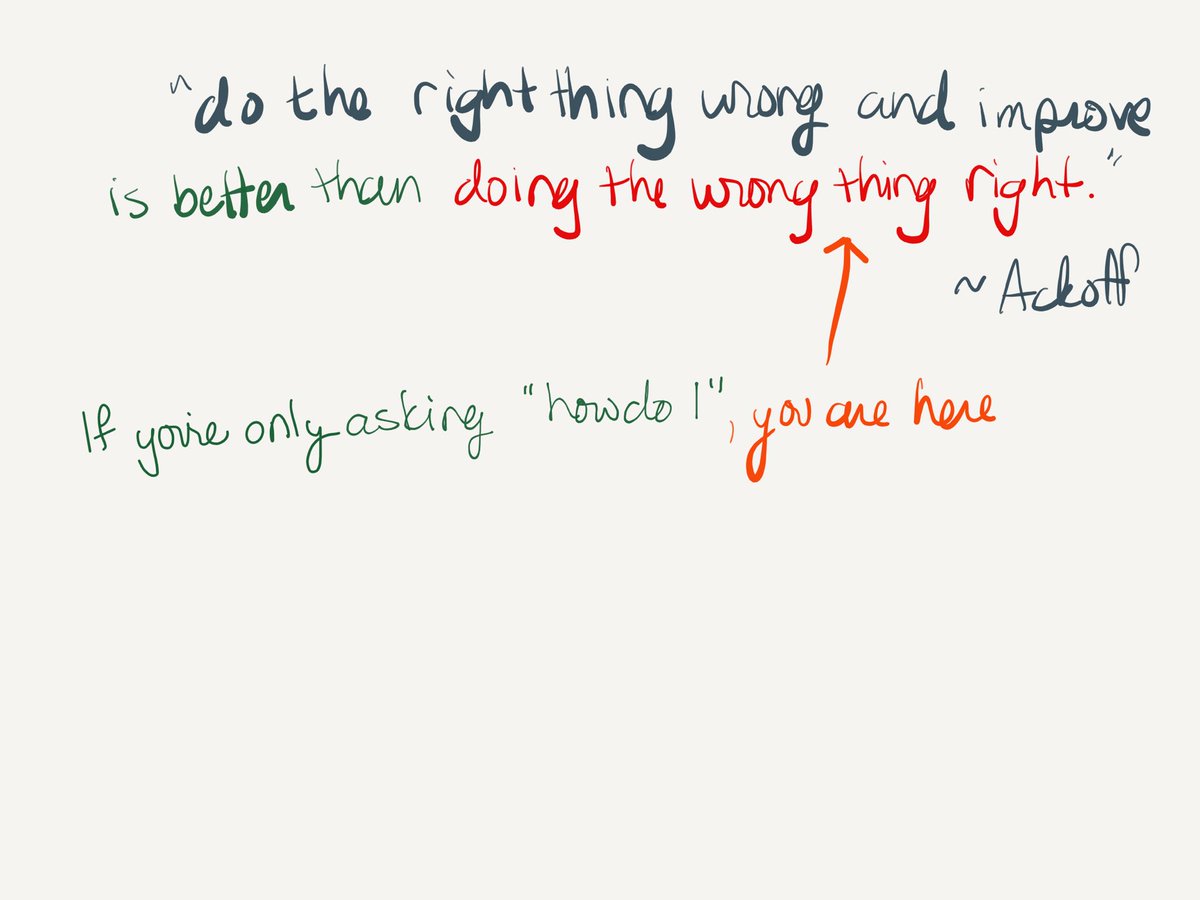 "do the right thing wrong and improve
is better than doing the wrong thing right."
~ Ackoff
If you're only asking "how do I", you are here